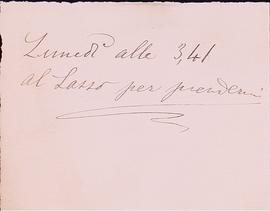 Lunedì alle 3,41
al Sasso per prendermi